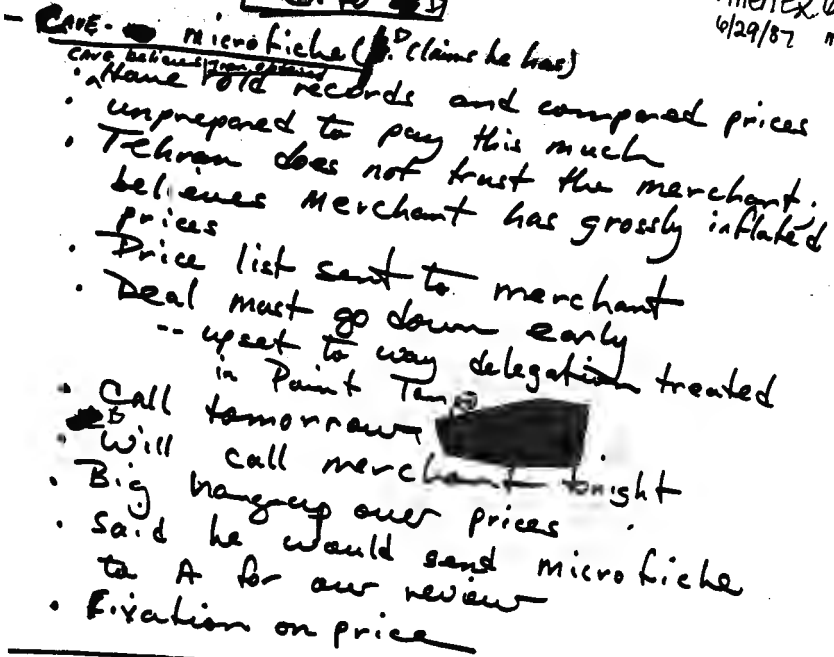 6/29/87
- CAVE - microfiche ( D claims he has)
cave believes Iran obtained
· Have old records and compared prices
· unprepared to pay this much
· Tehran does not trust the merchant.
believes Merchant has grossly inflated
prices
· Price list sent to merchant
· Deal must go down early
-- upset to way delegation treated
in Point Tango
· Call tomorrow
D
· Will call merchant tonight
· Big hang-up over prices
· Said he would send microfiche
to A for our review
· Fixation on price